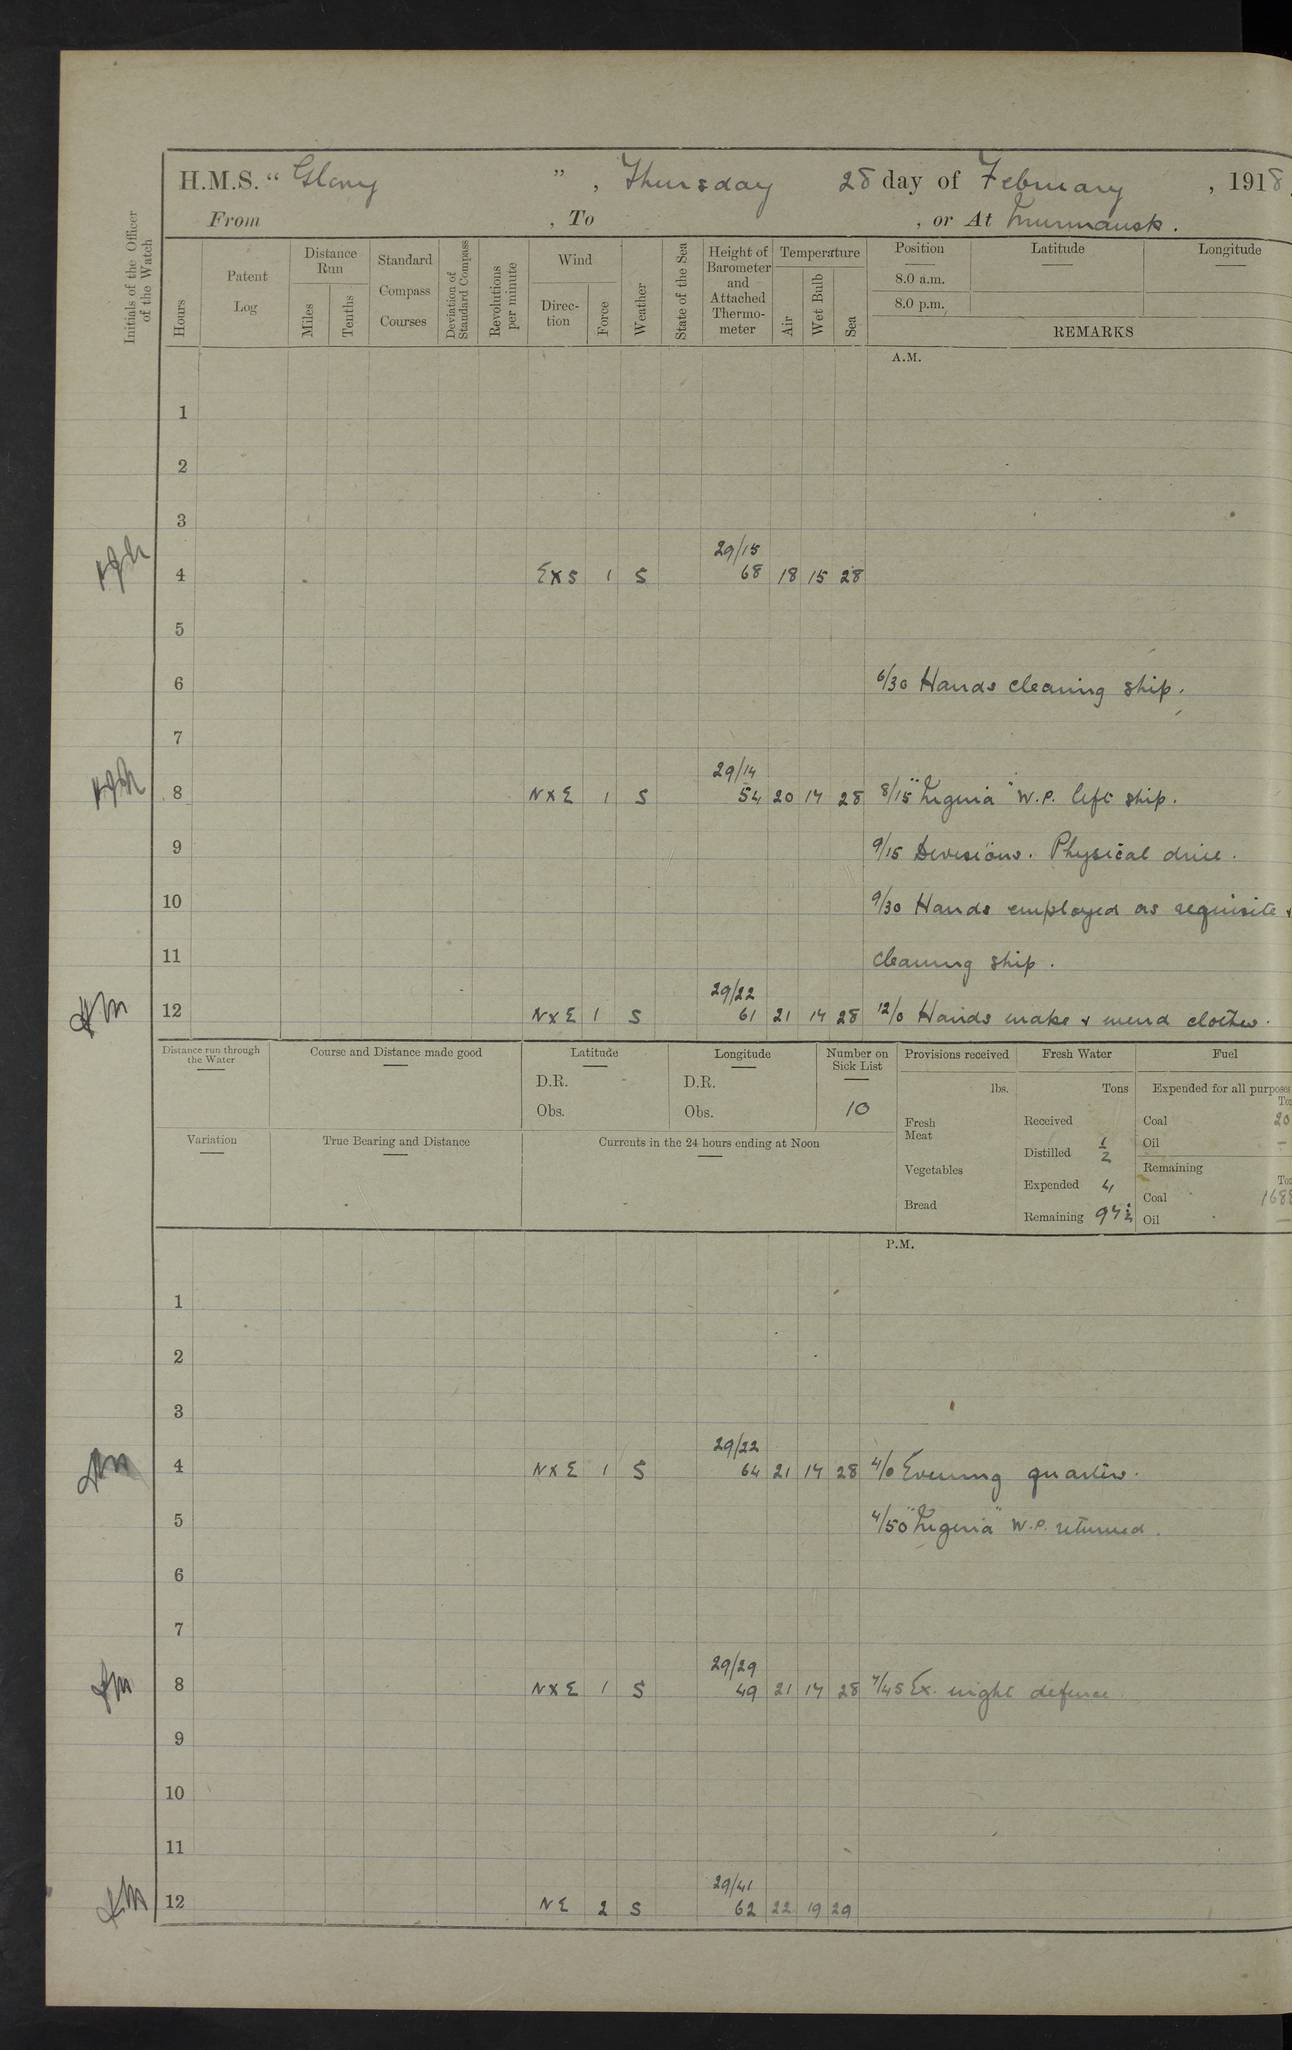 H.M.S. "Glory", Thursday 28 day of February, 1918
From , To , or At Murmansk.
Initials of the Officer of the Watch
Hours
Patent Log
Distance Run
Miles
Tenths
Standard Compass Courses
Deviation of Standard Compass
Revolutions per minute
Wind
Direction
Force
Weather
State of the Sea
Height of Barometer and Attached Thermometer
Temperature
Air
Wet Bulb
Sea
Position
8.0 a.m.
8.0 p.m.
Latitude
Longitude
REMARKS
A.M.
1
2
3
29/15
4 E×S 1 S 68 18 15 28
5
6 6/30 Hands cleaning ship.
7
29/14
8 N×E 1 S 54 20 17 28 8/15 W.P. left ship.
9 9/15 Divisions. Physical drill.
10 9/30 Hands employed as requisite &
11 cleaning ship.
29/22
12 N×E 1 S 61 21 17 28 12/0 Hands make & mend clothes.
Distance run through the Water
Course and Distance made good
Latitude
D.R.
Obs.
Longitude
D.R.
Obs.
Number on Sick List
10
Variation
True Bearing and Distance
Currents in the 24 hours ending at Noon
Provisions received
lbs.
Fresh Meat
Vegetables
Bread
Fresh Water
Tons
Received
Distilled 1/2
Expended 4
Remaining 97 1/2
Fuel
Expended for all purposes
Coal 20
Oil —
Remaining
Coal 168
Oil —
P.M.
1
2
3
29/22
4 N×E 1 S 64 21 17 28 4/0 Evening quarters.
5 4/50 W.P. returned.
6
7
29/29
8 N×E 1 S 49 21 17 28 7/45 Ex. night defence.
9
10
11
29/41
12 NE 2 S 62 22 19 29